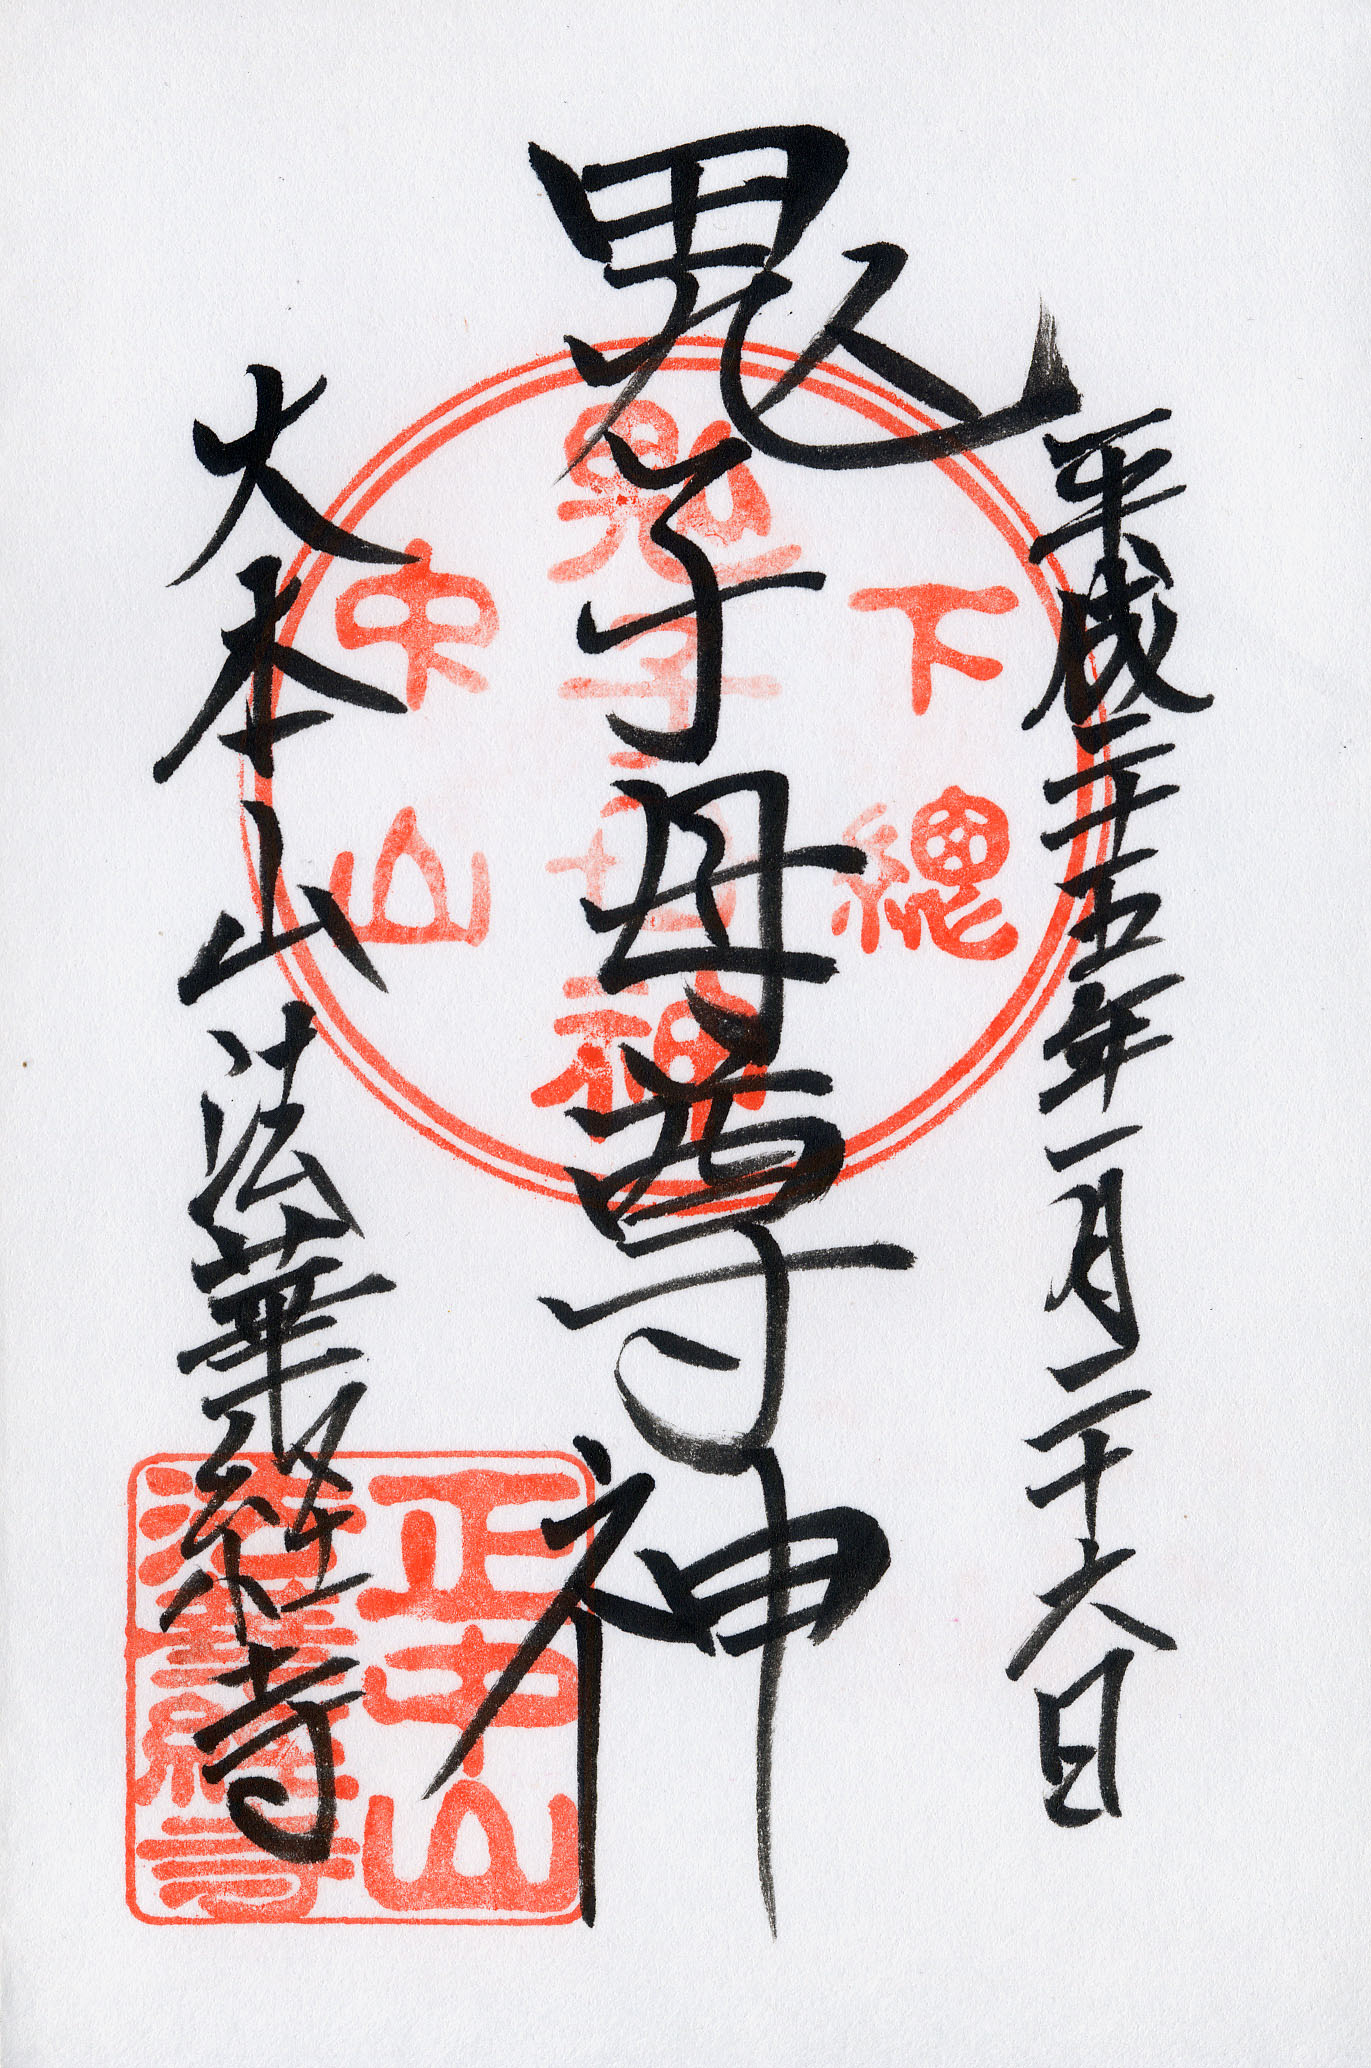 平成二十五年一月二十六日
鬼子母尊神
大本山法華経寺
下總
鬼子母神
中山
正中山
法華經寺